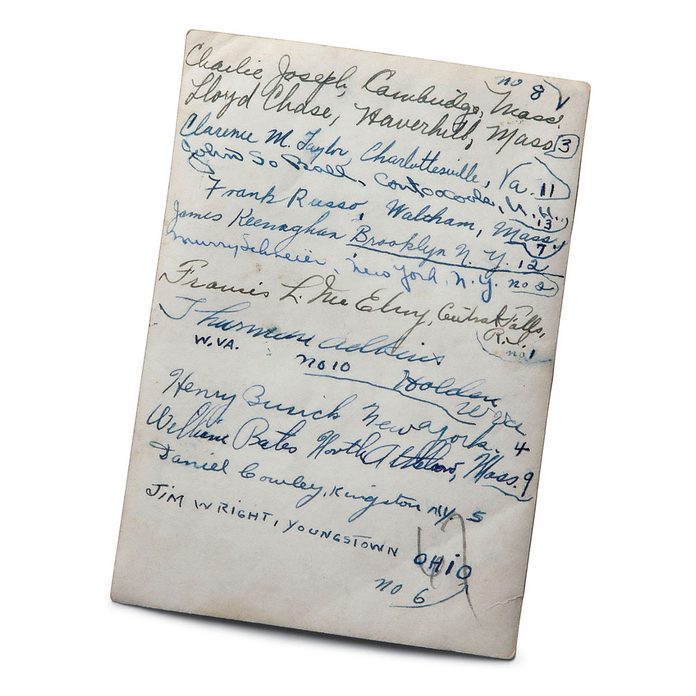 no 8
Charlie Joseph, Cambridge, Mass.
Lloyd Chase, Haverhill, Mass 3
Clarence M. Taylor, Charlottesville, Va. 11
John So Ball, Contoocook, N. H., 13
Frank Russo, Waltham, Mass. 7
James Keenaghan Brooklyn N. Y. 12
Murry Schneier, New York, N.Y. no 2
Francis L. Mc Elroy, Central Falls, R.I. no 1
Thurman Adkins
W.VA. no 10 Holden W Va
Henry Busick New York. 4
William Bates North Attleboro, Mass. 9
Daniel Cowley, Kingston N.Y. 5
JIM WRIGHT, YOUNGSTOWN OHIO
no 6